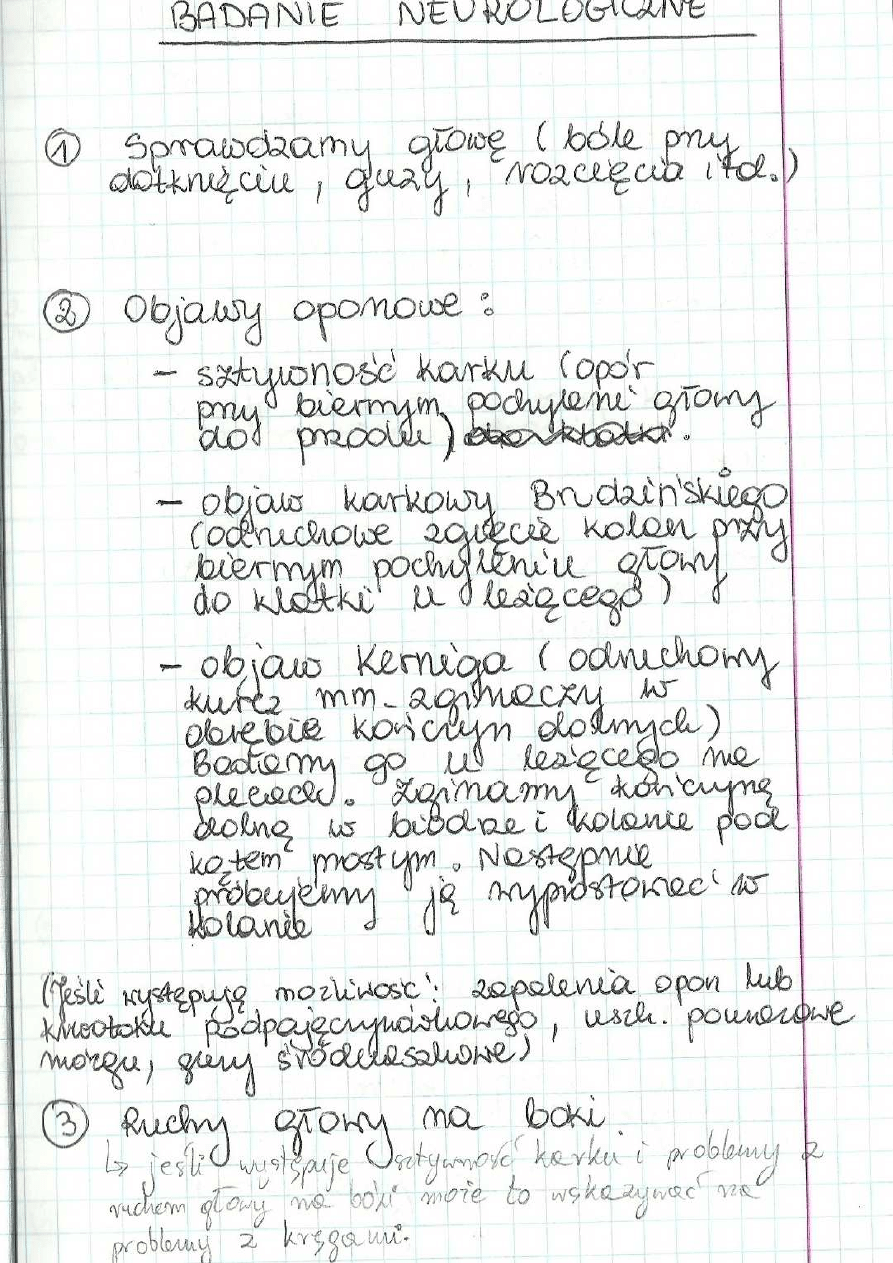 BADANIE NEUROLOGICZNE
① Sprawdzamy głowę (bóle przy
dotknięciu, guzy, rozcięcia itd.)
② Objawy oponowe:
- sztywność karku (opór
przy biernym pochyleniu głowy
do przodu).
- objaw karkowy Brudzińskiego
(odruchowe zgięcie kolan przy
biernym pochyleniu głowy
do klatki u leżącego)
- objaw Kerniga (odruchowy
kurcz mm. zginaczy w
obrębie kończyn dolnych)
Badamy go u leżącego na
plecach. Zginamy kończynę
dolną w biodrze i kolanie pod
kątem prostym. Następnie
próbujemy ją wyprostować w
kolanie
(Jeśli występują możliwość: zapalenia opon lub
krwotoku podpajęczynówkowego, uszk. pourazowe
mózgu, guzy śródczaszkowe)
③ Ruchy głowy na boki
↳ jeśli występuje sztywność karku i problemy z
ruchem głowy na boki może to wskazywać na
problemy z kręgami.